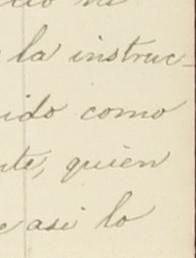 la instruc-
ido como
nte, quien
e asi lo